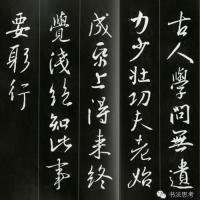 古人學問無遺
力少壯功夫老始
成帋上得来終
覺淺絶知此事
要躬行
书法思考